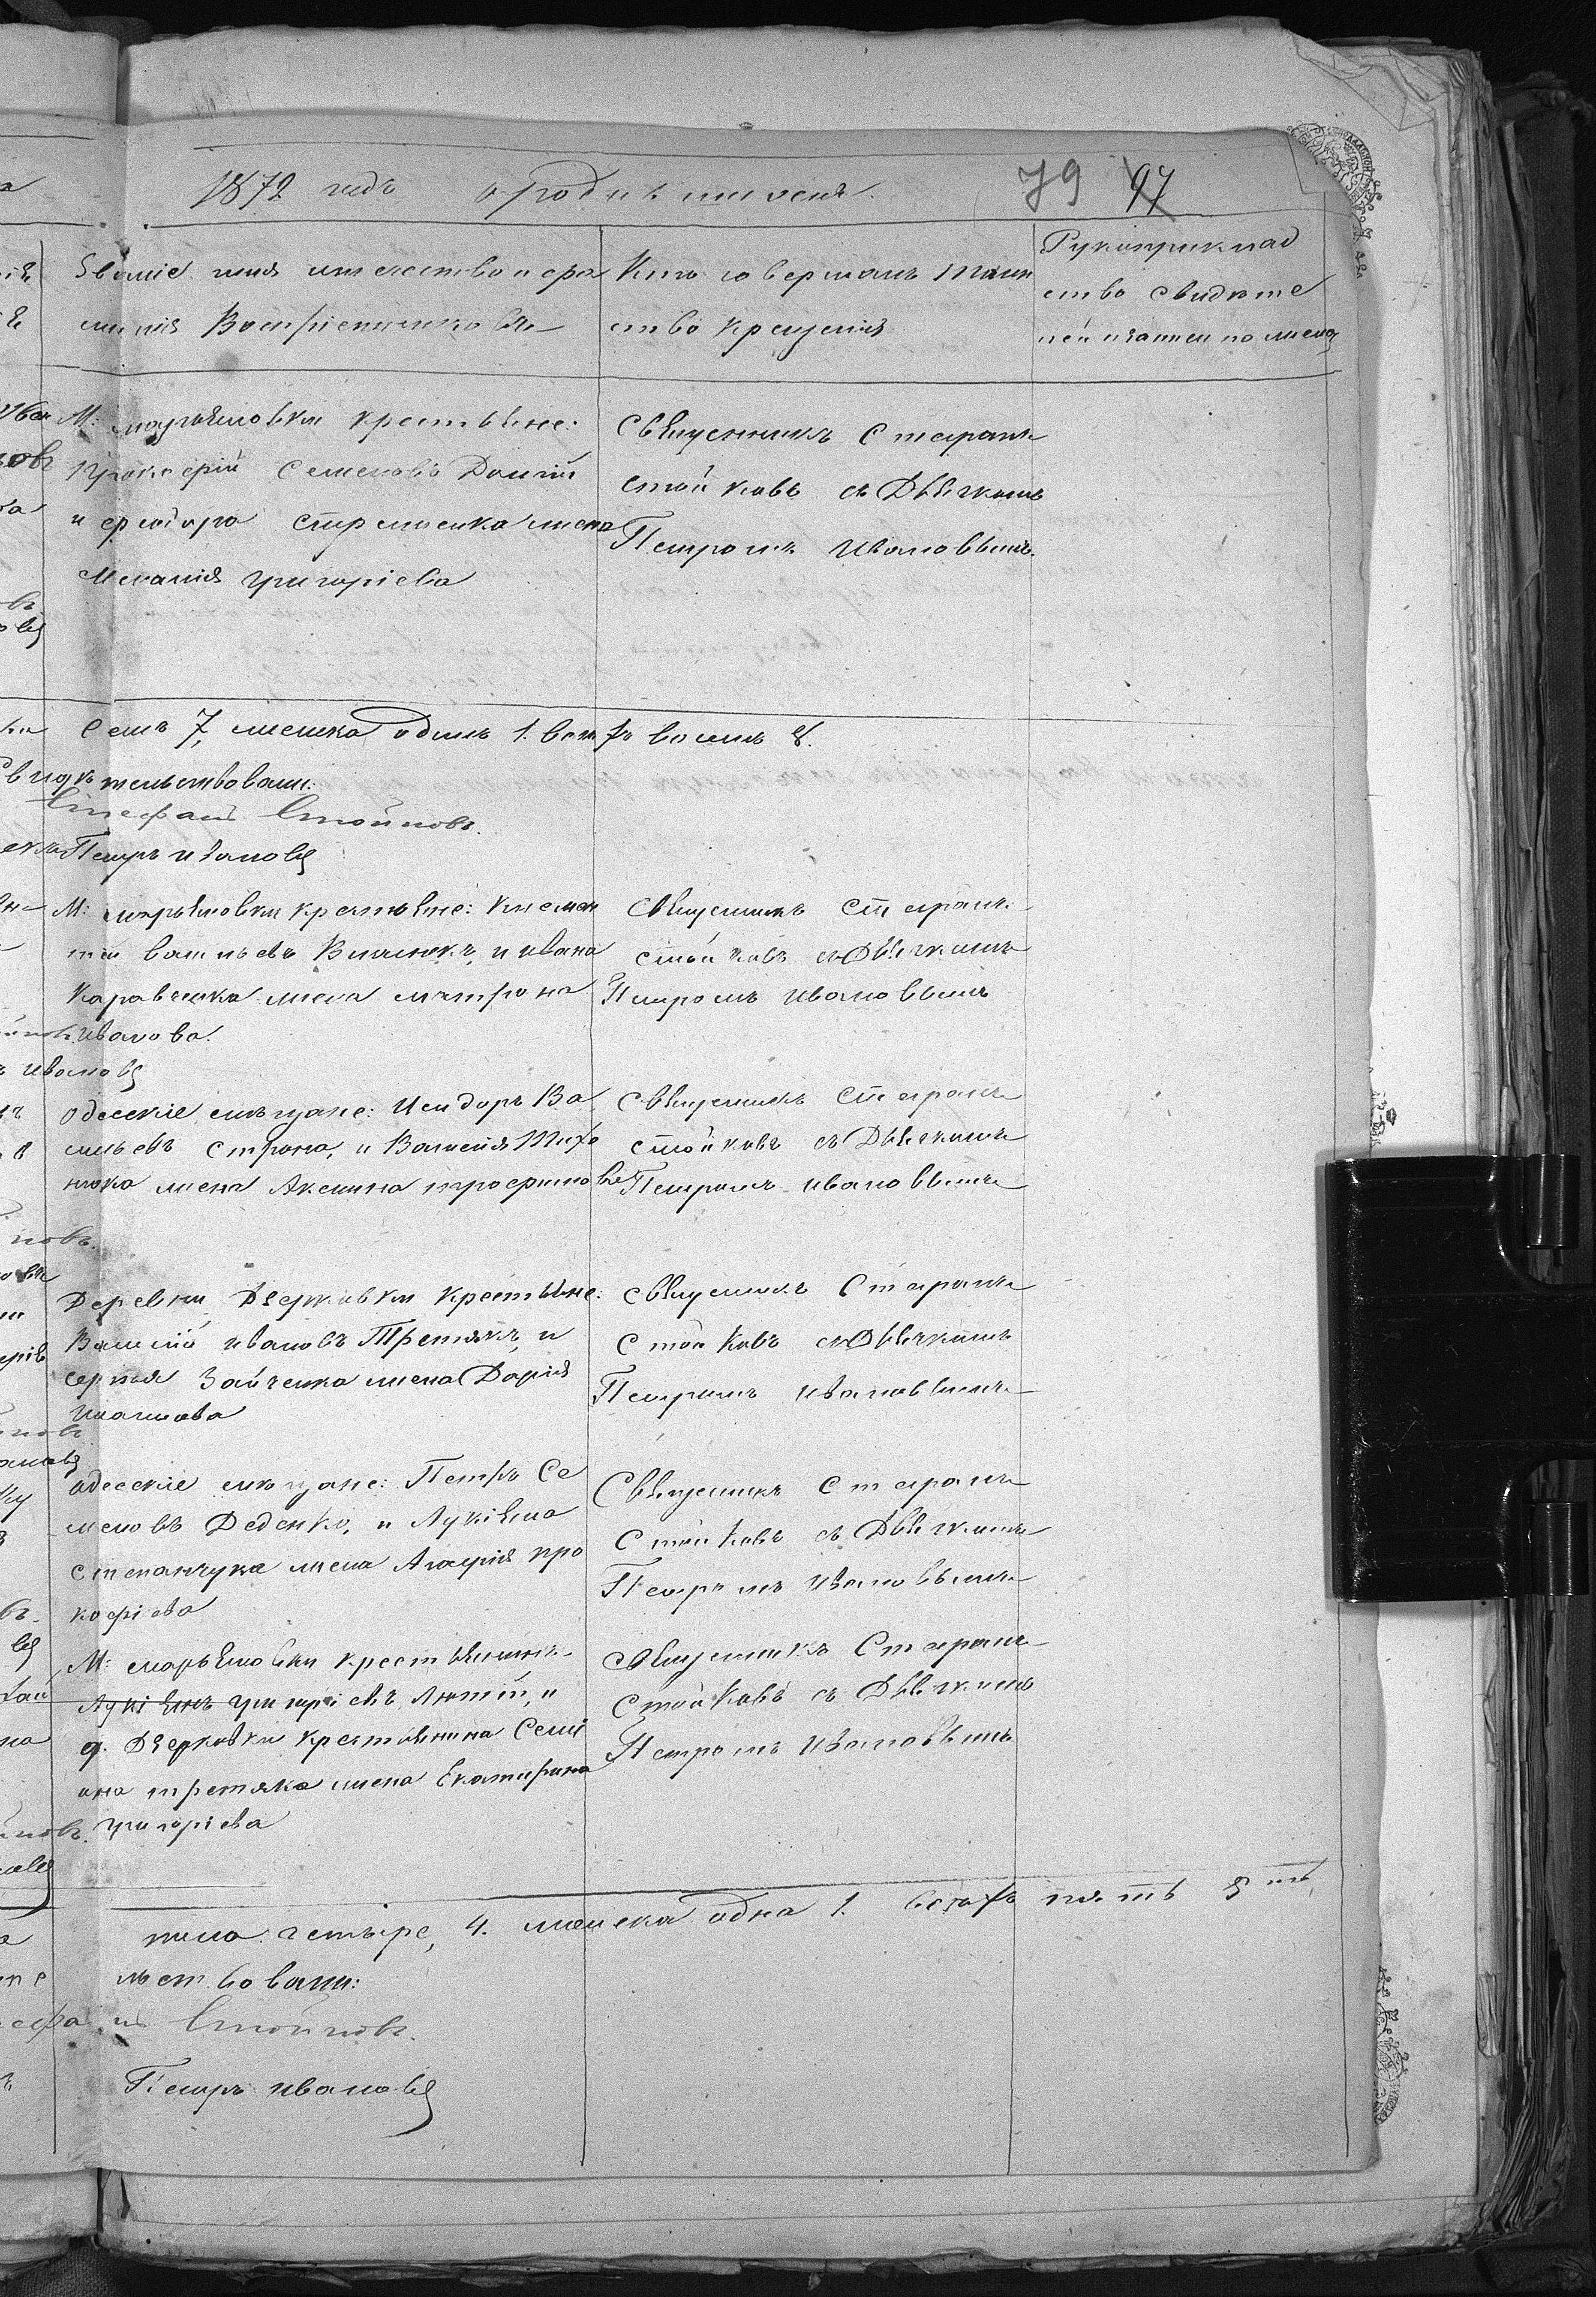 1872 годъ о родившихся. 79 97
Званіе имя отечество и фа
милія Воспріемниковъ
Кто совершалъ таин
ство крещенія
Рукоприклад
ство свидѣте
лей
М: марьяновки крестьяне:
Прокофій Семеновъ
и жена
Меланія григоріева
Священникъ Стефанъ
стойковъ съ Дьячкомъ
Петромъ Ивановымъ.
семъ 7, женска одинъ 1. всѣхъ восемъ 8.
свидѣтельствовали:
Стефанъ Стойковъ.
Петръ ивановъ
М: марьяновки крестьяне: климен
тій васильевъ и ивана
Каравченка жена матрона
Иванова.
Священникъ Стефанъ
стойковъ съ Дьячкомъ
Петромъ ивановымъ
одесскіе мѣщане: Исидоръ Ва
сильевъ и Василія Тихо
нюка жена Аксинія трофимова
Священникъ Стефанъ
стойковъ съ Дьячкомъ
Петромъ ивановымъ
Деревни крестьяне:
Василій ивановъ Третякъ, и
сергѣя Зайченка жена Дарія
Игнатова
Священникъ Стефанъ
Стойковъ съ Дьячкомъ
Петромъ ивановымъ
одесскіе мѣщане: Петръ Се
меновъ Деденко, и Лукіяна
степанчука жена Агафія про
кофіева
Священникъ Стефанъ
Стойковъ съ Дьячкомъ
Петромъ Ивановымъ
М: марьяновки крестьянинъ
Лукіянъ григоріевъ Лютій, и
д. крестьянина Семі
она третяка жена Екатирина
григоріева
Священникъ Стефанъ
Стойковъ съ Дьячкомъ
Петромъ Ивановымъ
пола четыре, 4. женска одна 1. всѣхъ пять 5ть
льствовали:
Стойковъ.
Петръ ивановъ